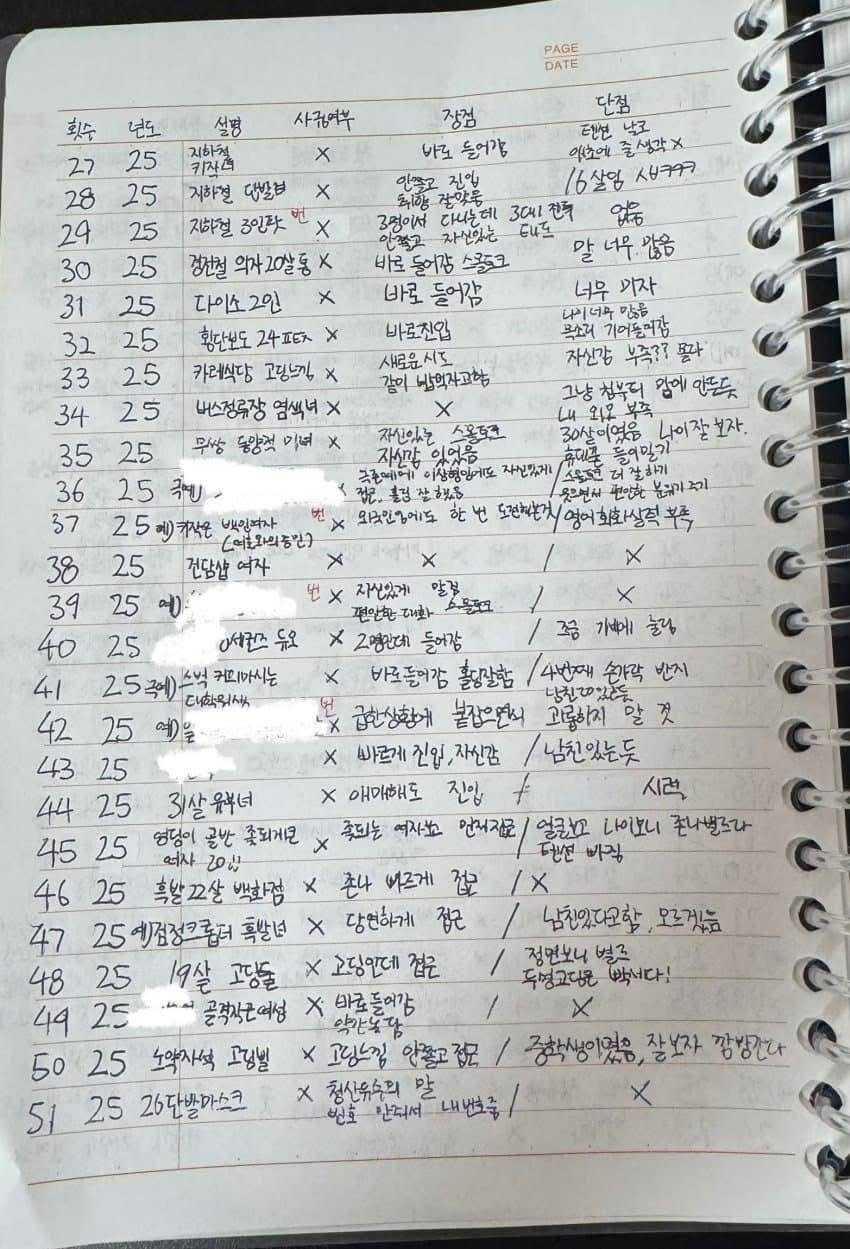 PAGE
DATE
횟수 년도 설명 사귐여부 장점 단점
27 25 지하철 키작녀 X 바로 들어감 텐션 낮고 애초에 줄 생각 X
28 25 지하철 단발녀 X 안쫄고 진입 취향 잘맞춤 16살임 ㅅㅂㅋㅋㅋ
29 25 지하철 3인팟 번 X 3명이서 다니는데 3대1 전투 안쫄고 자신있는 태도 없음
30 25 의자 20살 통 X 바로 들어감 스몰토크 말 너무 많음
31 25 다이소 2인 X 바로 들어감 너무
32 25 횡단보도 24 X 바로진입 나이 너무 많음 목소리 기어들어감
33 25 카레식당 고딩느낌 X 새로운 시도 같이 밥먹자고함 자신감 부족?? 몰라
34 25 버스정류장 염색녀 X X 그냥 첨부터 맘에 안든듯 내 외모 부족
35 25 무쌍 동양적 미녀 X 자신있는 스몰토크 자신감 있었음 30살이였음 나이 잘 보자. 휴대폰 들이밀기
36 25 극예) X 극존예에 이상형임에도 자신있게 접근, 홀딩 잘 했음 / 스몰토크 더 잘하기 웃으면서 편안한 분위기 주기
37 25 예) 키작은 백인여자 번 X 외국인임에도 한 번 도전해보는것 / 영어회화실력 부족
38 25 건담샵 여자 X X / X
39 25 예) 번 X 자신있게 말검 편안한 대화 스몰토크 / X
40 25 세븐즈 듀오 X 2명인데 들어감 / 조금 기빼에 눌림
41 25 극예) 스벅 커피마시는 대학원생 X 바로들어감 홀딩잘함 / 4번째 손가락 반지 남친 있는듯
42 25 예) 을 번 X 급한상황에 붙잡으면서 괴롭히지 말 것
43 25 X 빠르게 진입, 자신감 / 남친있는듯
44 25 31살 유부녀 X 애매해도 진입 / 시력
45 25 엉덩이 골반 좆되게큰 여자 20 X 좆되는 여자보고 먼저접근 / 얼굴보고 나이보니 존나별로다 텐션 빠짐
46 25 흑발 22살 백화점 X 존나 빠르게 접근 / X
47 25 예) 검정크롭티 흑발녀 X 당연하게 접근 / 남친있다고함, 모르겠음
48 25 19살 고딩들 X 고딩인데 접근 / 정면보니 별로 두명고딩은 빡시다!
49 25 골격작은여성 X 바로들어감 약간농담 / X
50 25 노약자석 고딩삘 X 고딩느낌 안쫄고접근 / 중학생이였음, 잘보자 깜방간다
51 25 26 단발마스크 X 청산유수의 말 번호 안돼서 내번호줌 / X